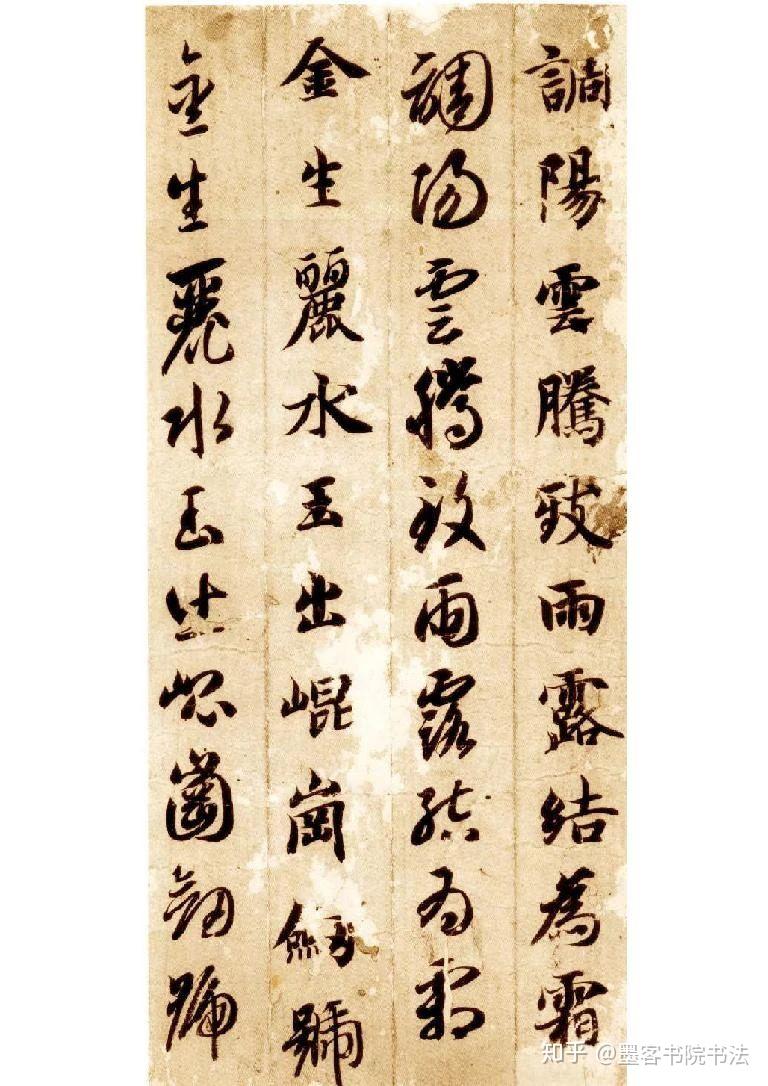 調陽雲騰致雨露結為霜
調陽雲騰致雨露結為霜
金生麗水玉出崐崗劒號
金生麗水玉出崐崗劒號
知乎 @墨客书院书法